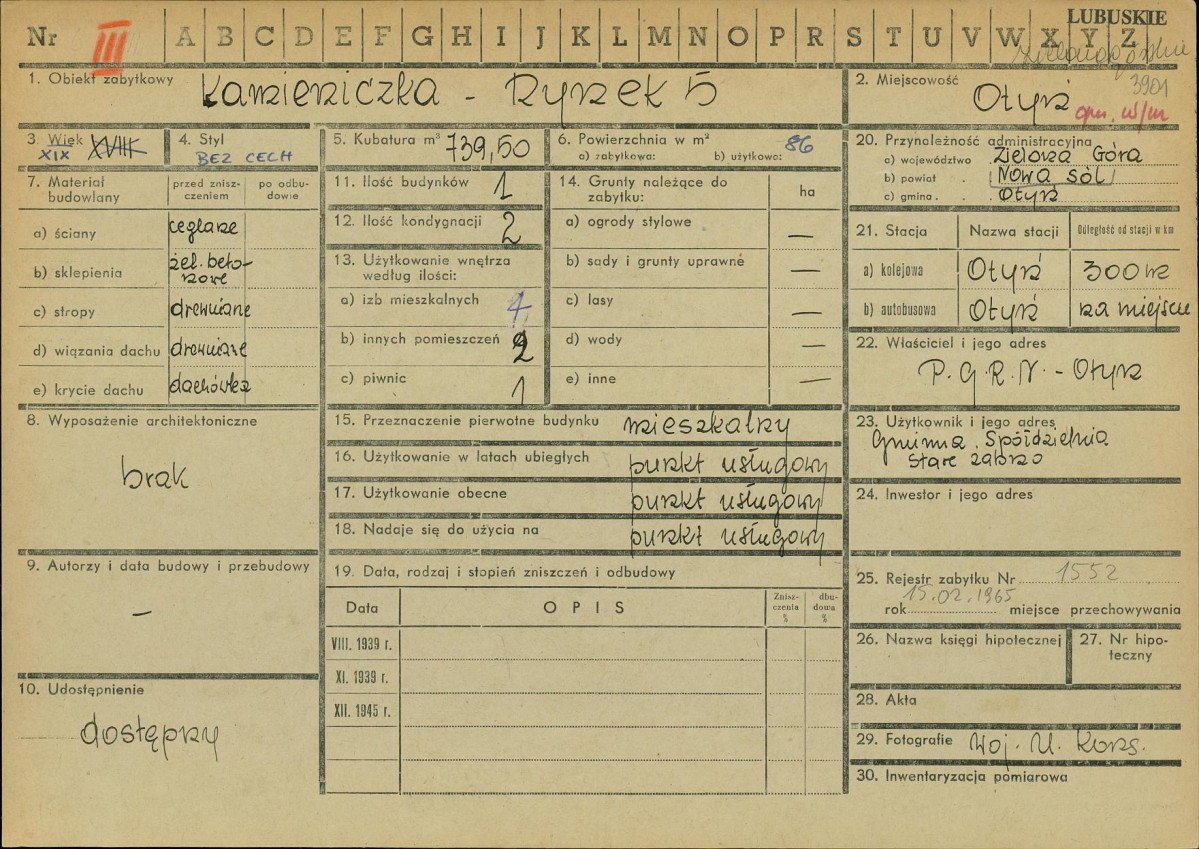 LUBUSKIE
Nr III A B C D E F G H I J K L M N O P R S T U V W X Y Z
3901
1. Obiekt zabytkowy Kamieniczka - Rynek 5
2. Miejscowość Otyń
3. Wiek XIX XVIII
4. Styl BEZ CECH
5. Kubatura m³ 739,50
6. Powierzchnia w m²
a) zabytkowa: b) użytkowa: 86
7. Materiał budowlany
przed znisz-
czeniem
po odbu-
dowie
a) ściany ceglane
b) sklepienia żel. beto-
nowe
c) stropy drewniane
d) wiązania dachu drewniane
e) krycie dachu dachówka
8. Wyposażenie architektoniczne
brak
9. Autorzy i data budowy i przebudowy
—
10. Udostępnienie
dostępny
11. Ilość budynków 1
12. Ilość kondygnacji 2
13. Użytkowanie wnętrza
według ilości:
a) izb mieszkalnych 4
b) innych pomieszczeń 2
c) piwnic 1
14. Grunty należące do
zabytku:
ha
a) ogrody stylowe —
b) sady i grunty uprawne —
c) lasy —
d) wody —
e) inne —
15. Przeznaczenie pierwotne budynku mieszkalny
16. Użytkowanie w latach ubiegłych punkt usługowy
17. Użytkowanie obecne punkt usługowy
18. Nadaje się do użycia na punkt usługowy
19. Data, rodzaj i stopień zniszczeń i odbudowy
Data OPIS
Znisz-
czenia
%
dbu-
dowa
%
VIII. 1939 r.
XI. 1939 r.
XII. 1945 r.
20. Przynależność administracyjna
a) województwo Zielona Góra
b) powiat Nowa Sól
c) gmina Otyń
21. Stacja Nazwa stacji Odległość od stacji w km
a) kolejowa Otyń 300 m
b) autobusowa Otyń na miejscu
22. Właściciel i jego adres
P.G.R.N. - Otyń
23. Użytkownik i jego adres
Gminna Spółdzielnia
24. Inwestor i jego adres
25. Rejestr zabytku Nr 1552
15.02.1965
rok miejsce przechowywania
26. Nazwa księgi hipotecznej
27. Nr hipo-
teczny
28. Akta
29. Fotografie Woj. U. Kons.
30. Inwentaryzacja pomiarowa